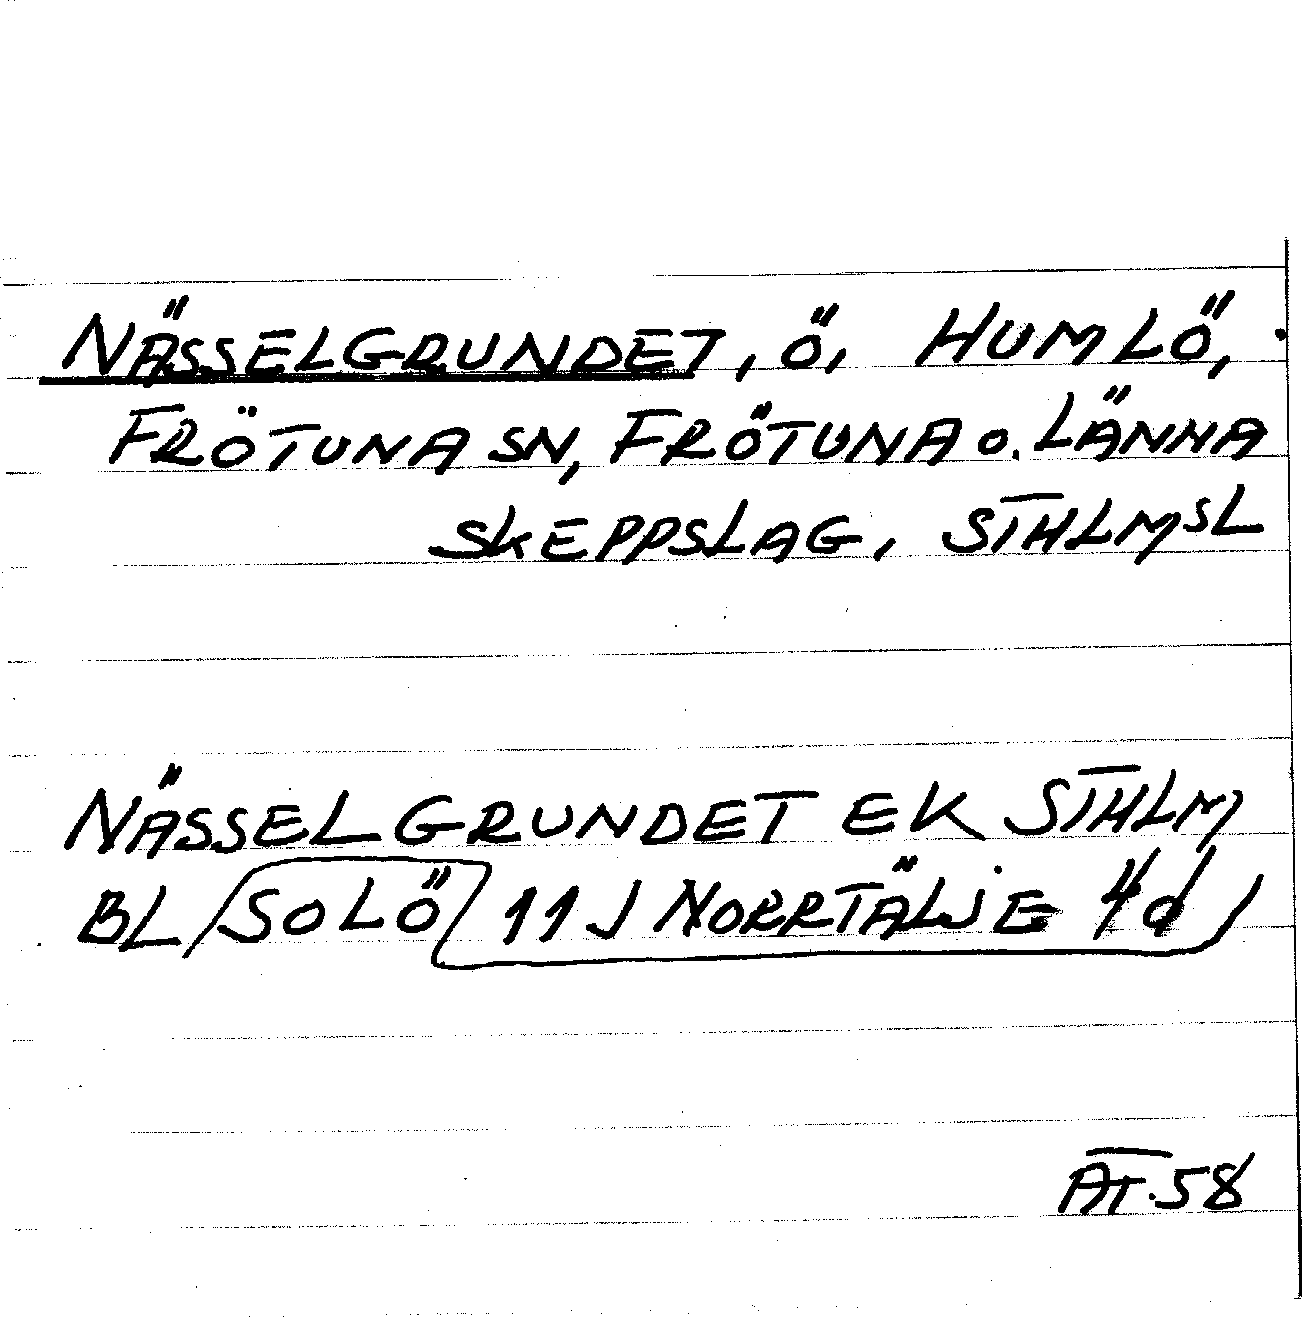 NÄSSELGRUNDET, Ö, HUMLÖ,
FRÖTUNA SN, FRÖTUNA o. LÄNNA
SKEPPSLAG, STHLMSL
NÄSSELGRUNDET EK STHLM
BL SOLÖ 11J NORRTÄLJE 4d
AT.58